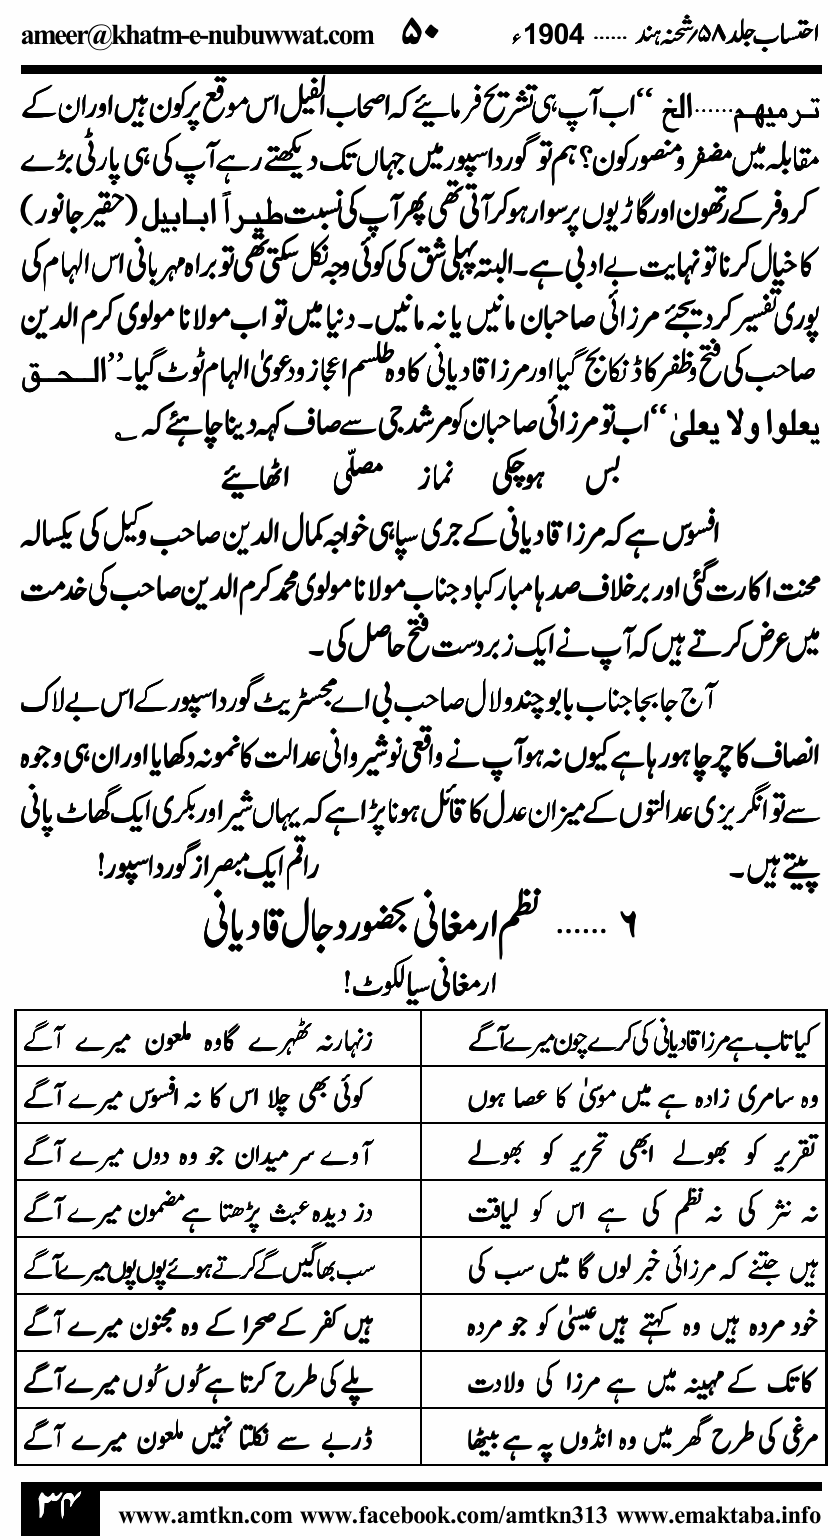 احتساب جلد ۵۸؍شحنہ ہند ...... 1904ء ۵۰ ameer@khatm-e-nubuwwat.com
ترمیھم......الخ ‘‘اب آپ ہی تشریح فرمائیے کہ اصحاب الفیل اس موقع پر کون ہیں اور ان کے
مقابلہ میں مضفر و منصور کون؟ ہم تو گورداسپور میں جہاں تک دیکھتے رہے آپ کی ہی پارٹی بڑے
کروفر کے رتھون اور گاڑیوں پر سوار ہوکر آتی تھی پھر آپ کی نسبت طیراً ابابیل (حقیر جانور)
کا خیال کرنا تو نہایت بے ادبی ہے۔ البتہ پہلی شق کی کوئی وجہ نکل سکتی تھی تو براہ مہربانی اس الہام کی
پوری تفسیر کر دیجئے مرزائی صاحبان مانیں یا نہ مانیں۔ دنیا میں تو اب مولانا مولوی کرم الدین
صاحب کی فتح و ظفر کا ڈنکا بج گیا اور مرزا قادیانی کا وہ طلسم اعجاز و دعویٰ الہام ٹوٹ گیا۔’’الحق
یعلوا ولا یعلیٰ ‘‘اب تو مرزائی صاحبان کو مرشد جی سے صاف کہہ دینا چاہئے کہ ؎
بس ہوچکی نماز مصلّی اٹھایئے
افسوس ہے کہ مرزا قادیانی کے جری سپاہی خواجہ کمال الدین صاحب وکیل کی یکسالہ
محنت اکارت گئی اور برخلاف صدہا مبارکباد جناب مولانا مولوی محمد کرم الدین صاحب کی خدمت
میں عرض کرتے ہیں کہ آپ نے ایک زبردست فتح حاصل کی۔
آج جابجا جناب بابو چندولال صاحب بی اے مجسٹریٹ گورداسپور کے اس بے لاک
انصاف کا چرچا ہورہا ہے کیوں نہ ہو آپ نے واقعی نوشیروانی عدالت کا نمونہ دکھایا اور ان ہی وجوہ
سے تو انگریزی عدالتوں کے میزان عدل کا قائل ہونا پڑا ہے کہ یہاں شیر اور بکری ایک گھاٹ پانی
پیتے ہیں۔ راقم ایک مبصر از گورداسپور!
۶ ...... نظم ارمغانی بحضور دجال قادیانی
ارمغانی سیالکوٹ!
کیا تاب ہے مرزا قادیانی کی کرے چون میرے آگے زنہار نہ ٹھہرے گا وہ ملعون میرے آگے
وہ سامری زادہ ہے میں موسیٰ کا عصا ہوں کوئی بھی چلا اس کا نہ افسوس میرے آگے
تقریر کو بھولے ابھی تحریر کو بھولے آوے سر میدان جو وہ دوں میرے آگے
نہ نثر کی نہ نظم کی ہے اس کو لیاقت دز دیدہ عبث پڑھتا ہے مضمون میرے آگے
ہیں جتنے کہ مرزائی خبر لوں گا میں سب کی سب بھاگیں گے کرتے ہوئے پوں پوں میرے آگے
خود مردہ ہیں وہ کہتے ہیں عیسیٰ کو جو مردہ ہیں کفر کے صحرا کے وہ مجنون میرے آگے
کاتک کے مہینہ میں ہے مرزا کی ولادت پلے کی طرح کرتا ہے کُوں کُوں میرے آگے
مرغی کی طرح گھر میں وہ انڈوں پہ ہے بیٹھا ڈربے سے نکلتا نہیں ملعون میرے آگے
۳۴ www.amtkn.com www.facebook.com/amtkn313 www.emaktaba.info